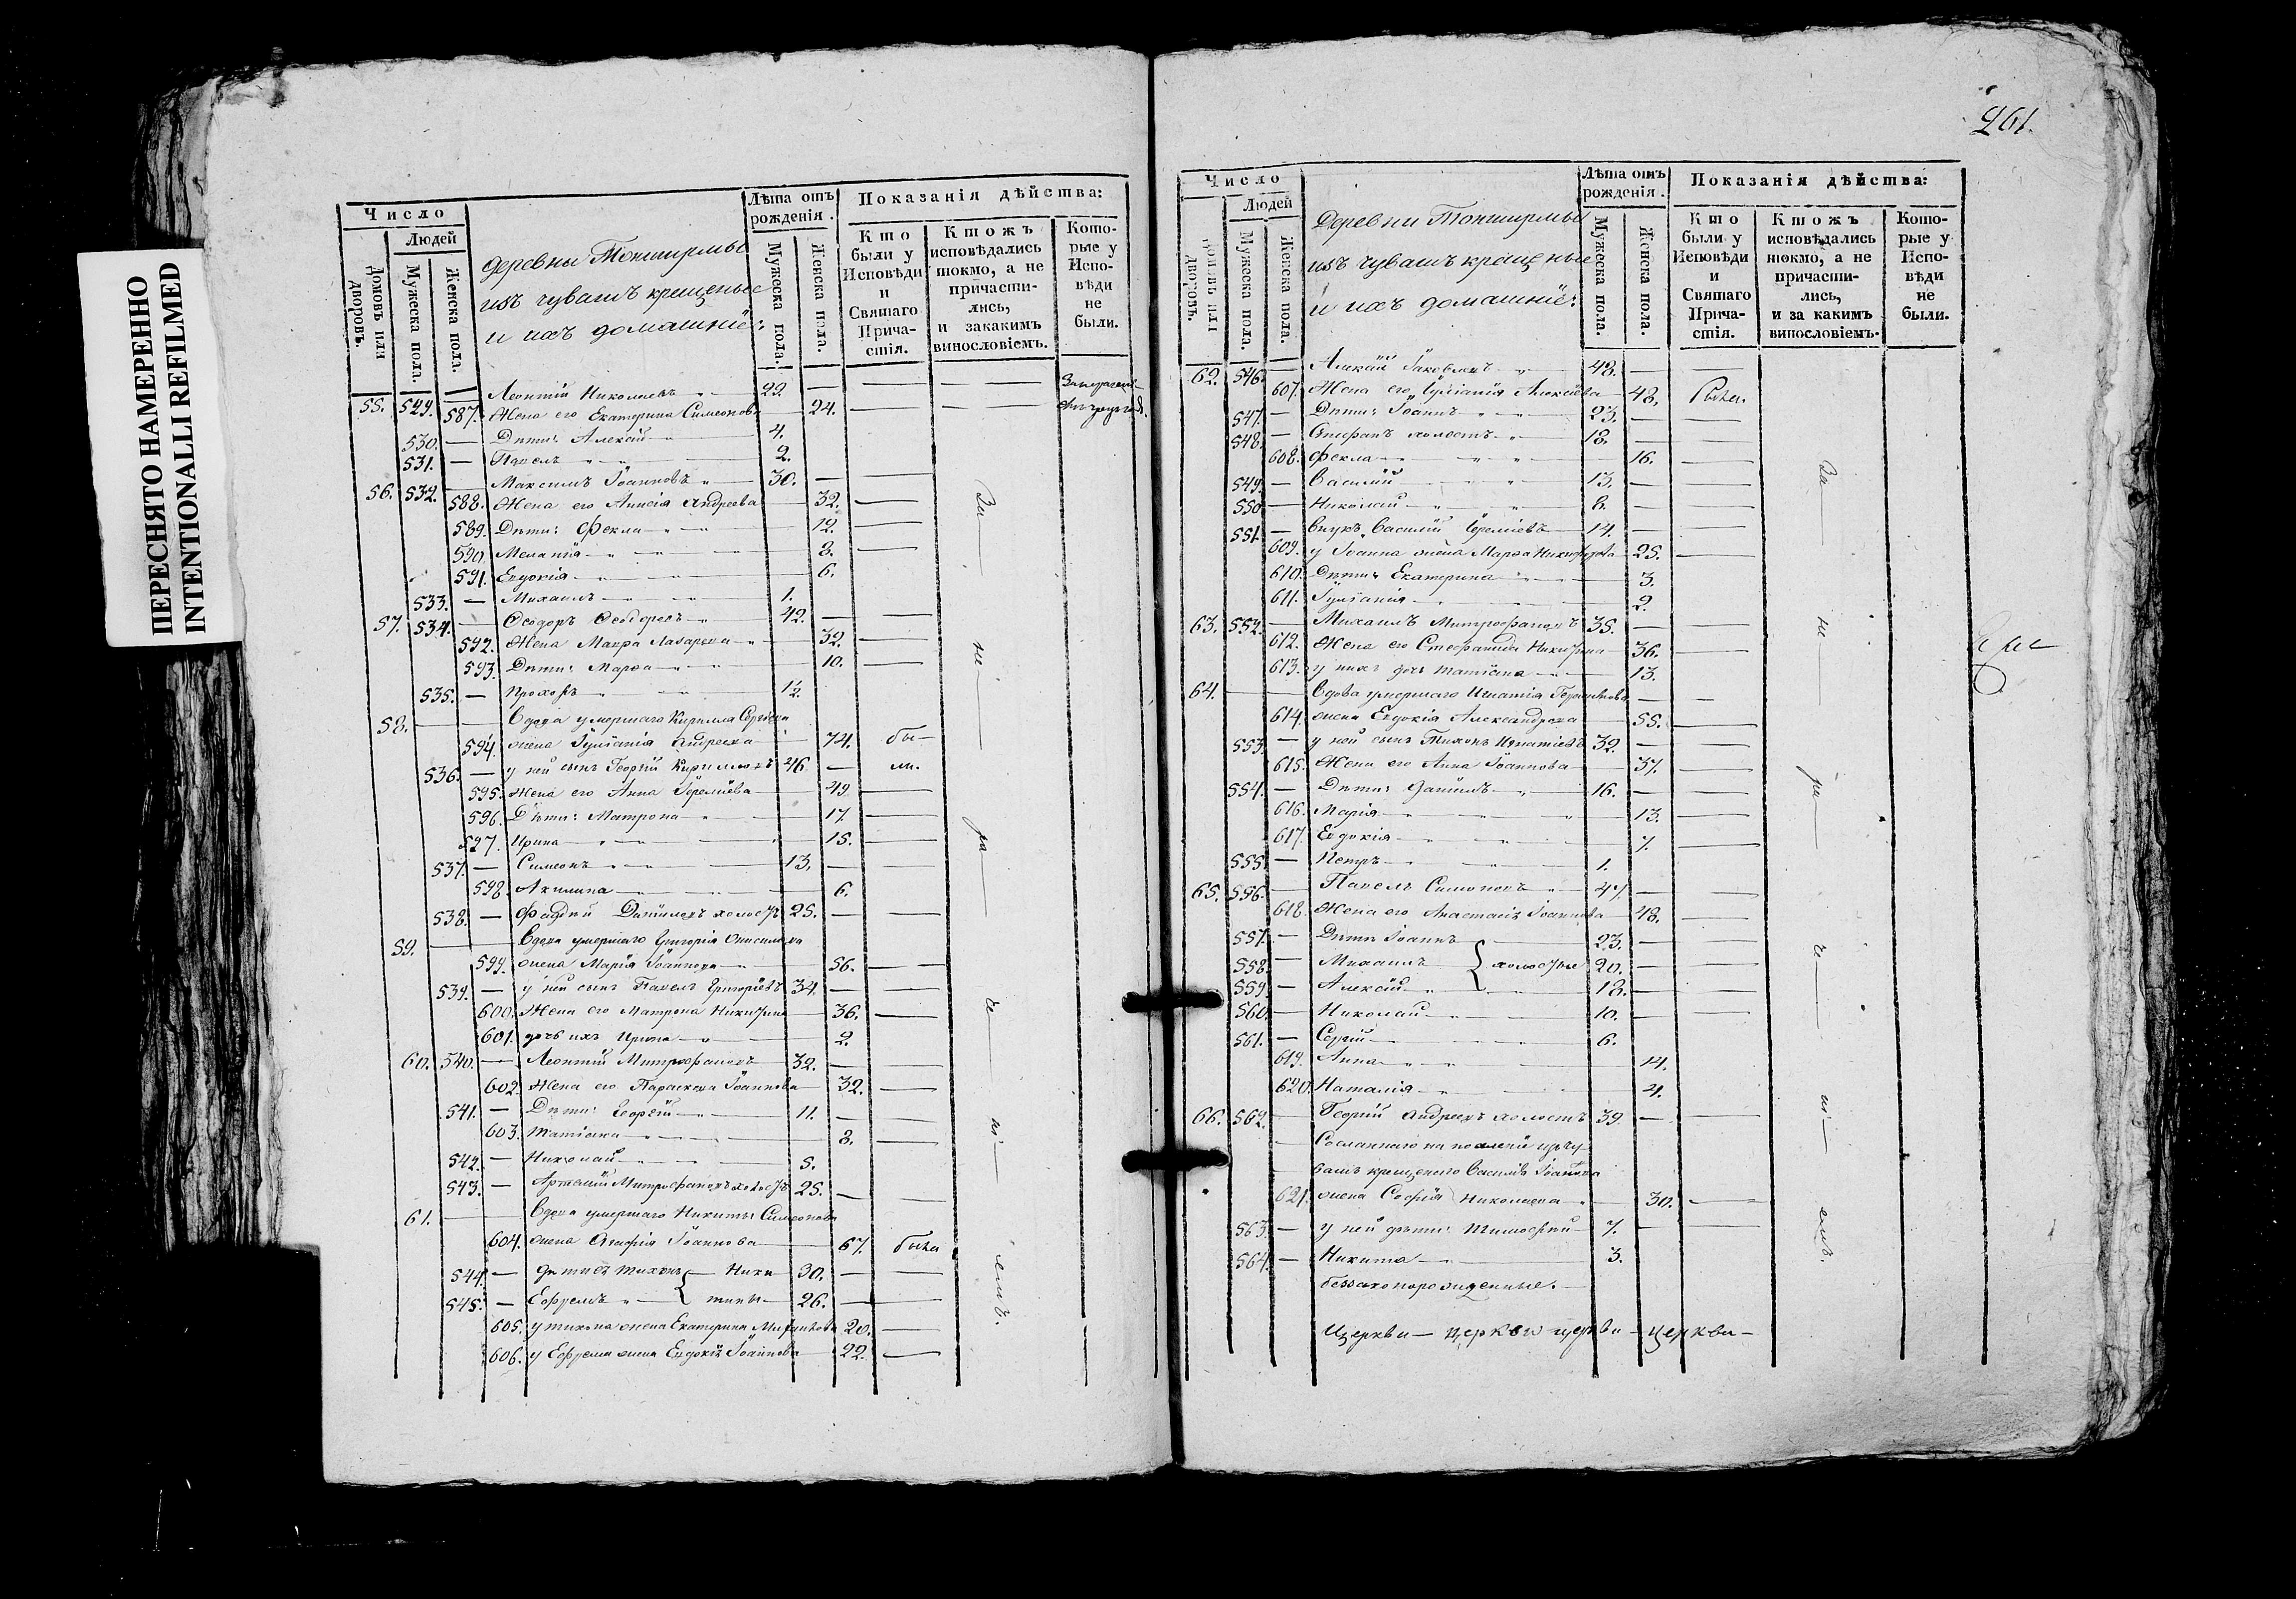 ПЕРЕСНЯТО НАМЕРЕННО
INTENTIONALLI REFILMED
Число
Людей
Домовъ или дворовъ.
Мужеска пола.
Женска пола.
деревни Токшурмы
изъ чувашъ крещеные
и ихъ домашнiе:
Лѣта отъ рожденiя.
Мужеска пола.
Женска пола.
Показанiя дѣйства:
Кто были у Исповѣди и Святаго Прича-стiя.
Ктожъ исповѣдались токмо, а не причасти-лись, и закакимъ винословiемъ.
Кото-рые у Испо-вѣди не были.
55. 529. — Леонтiй Николаевъ 22.
587. Жена его Екатерина Симеонова 24.
530. — Дѣти: Алексiй 4.
531. — Павелъ 2.
56. 532. — Максимъ Iоанновъ 30.
588. Жена его Анисiя Андреева 32.
589. Дѣти: Фекла 12.
590. Меланiя 8.
591. Евдокiя 6.
533. — Михаилъ 1.
57. 534. — Ѳеодоръ Ѳеодоровъ 42.
592. Жена Мавра Лазарева 32.
593. Дѣти: Марѳа 10.
535. — Прохоръ 1/2
58. — Вдова умершаго Кирилла Сергѣева
594. жена Iулiанiя Андреева 74. бы-
536. — у ней сынъ Георгiй Кирилловъ 46 ли.
595. Жена его Анна Iеремiева 49
596. Дѣти: Матрона 17
597. Ирина 15.
537. — Симеонъ 13.
598. Акилина 6.
538. — Фаддей Данiиловъ холостъ 25.
59. — Вдова умершаго Григорiя
599. жена Марiя Iоаннова 56.
539. — у ней сынъ Павелъ Григорiевъ 34.
600. Жена его Матрона Никитина 36.
601. дочь ихъ Ирина 2.
60. 540. — Леонтiй Митрофановъ 32.
602. Жена его Параскева Iоаннова 32.
541. — Дѣти: Георгiй 11.
603. Татiана 8.
542. — Николай 5.
543. — Артемiй Митрофановъ холостъ 25.
61. — Вдова умершаго Никиты Симеонова
604. жена Агафiя Iоаннова 67. была
544. — дѣти ея Тихонъ Ники- 30.
545. — Ефремъ тины 26.
605. у Тихона жена Екатерина 20.
606. у Ефрема жена Евдокiя Iоаннова 22.
За не ра че нi емъ.
261.
Число
Людей
Домовъ или дворовъ.
Мужеска пола.
Женска пола.
Деревни Токшурмы
изъ чувашъ крещеные
и ихъ домашнiе:
Лѣта отъ рожденiя.
Мужеска пола.
Женска пола.
Показанiя дѣйства:
Кто были у Исповѣди и Святаго Прича-стiя.
Ктожъ исповѣдались токмо, а не причасти-лись, и за какимъ винословiемъ.
Кото-рые у Испо-вѣди не были.
62. 546. — Алексiй Iаковлевъ 48.
607. Жена его Iулiанiя Алексiева 48. Была.
547. — Дѣти: Iоаннъ 23.
548. — Стефанъ холостъ 18.
608. Фекла 16.
549. — Василiй 13.
550. — Николай 8.
551. — Внукъ Василiй Iеремiевъ 14.
609. у Iоанна жена Марѳа Никифорова 25.
610. Дѣти: Екатерина 3.
611. Iулiанiя 2.
63. 552. — Михаилъ Митрофановъ 35.
612. Жена его Стефанида Никитина 36.
613. у нихъ дочь Татiана 13.
64. — Вдова умершаго Игнатiя
614. жена Евдокiя Александрова 55.
553. — у ней сынъ Тихонъ Игнатiевъ 32.
615. Жена его Анна Iоаннова 37.
554. — Дѣти: Данiилъ 16.
616. Марiя 13.
617. Евдокiя 7.
555. — Петръ 1.
65. 556. — Павелъ Симеоновъ 47.
618. Жена его Анастасiя Iоаннова 48.
557. — Дѣти Iоаннъ 23.
558. — Михаилъ холостые 20.
559. — Алексiй 18.
560. — Николай 10.
561. — Сергiй 6.
619. Анна 14.
620. Наталiя 4.
66. 562. — Георгiй Андреевъ холостъ 39
Сосланнаго на поселенiе изъ чу-
вашъ крещенаго Василiя Iоаннова
621. жена Софiя Николаева 30.
563. — у ней дѣти: Тимофей 7.
564. — Никита 3.
беззаконорожденные.
За не ра че нi емъ.
Церкви — церкви церкви — церкви —